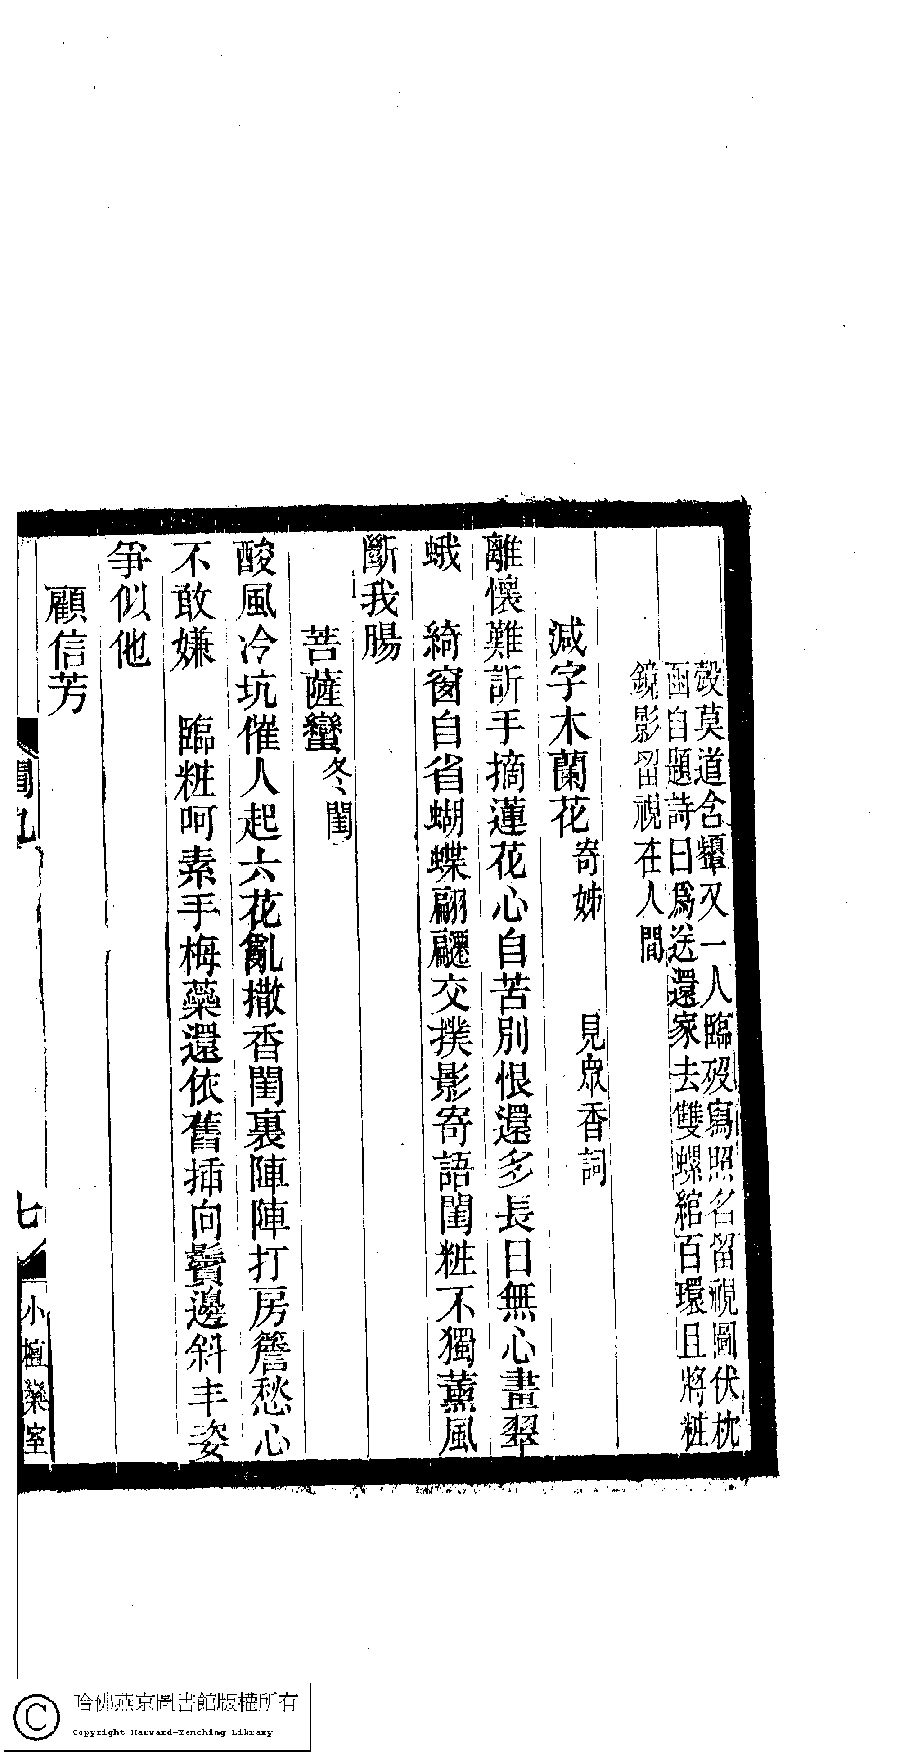 殼莫道含顰又一人臨歿寫照名留視圖伏枕
函自題詩曰爲送還家去雙螺綰百環且將粧
鏡影留視在人間
減字木蘭花寄姊 見眾香詞
離懷難訴手摘蓮花心自苦別恨還多長日無心畫翠
蛾 綺窗自省蝴蝶翩翾交撲影寄語閨粧不獨薰風
斷我腸
菩薩蠻冬閨
酸風冷坑催人起六花亂撒香閨裏陣陣打房簷愁心
不敢嫌 臨粧呵素手梅蘂還依舊揷向鬢邊斜丰姿
爭似他
顧信芳
閨九
七
小檀欒室
哈佛燕京圖書館版權所有
Copyright Harvard-Yenching Library